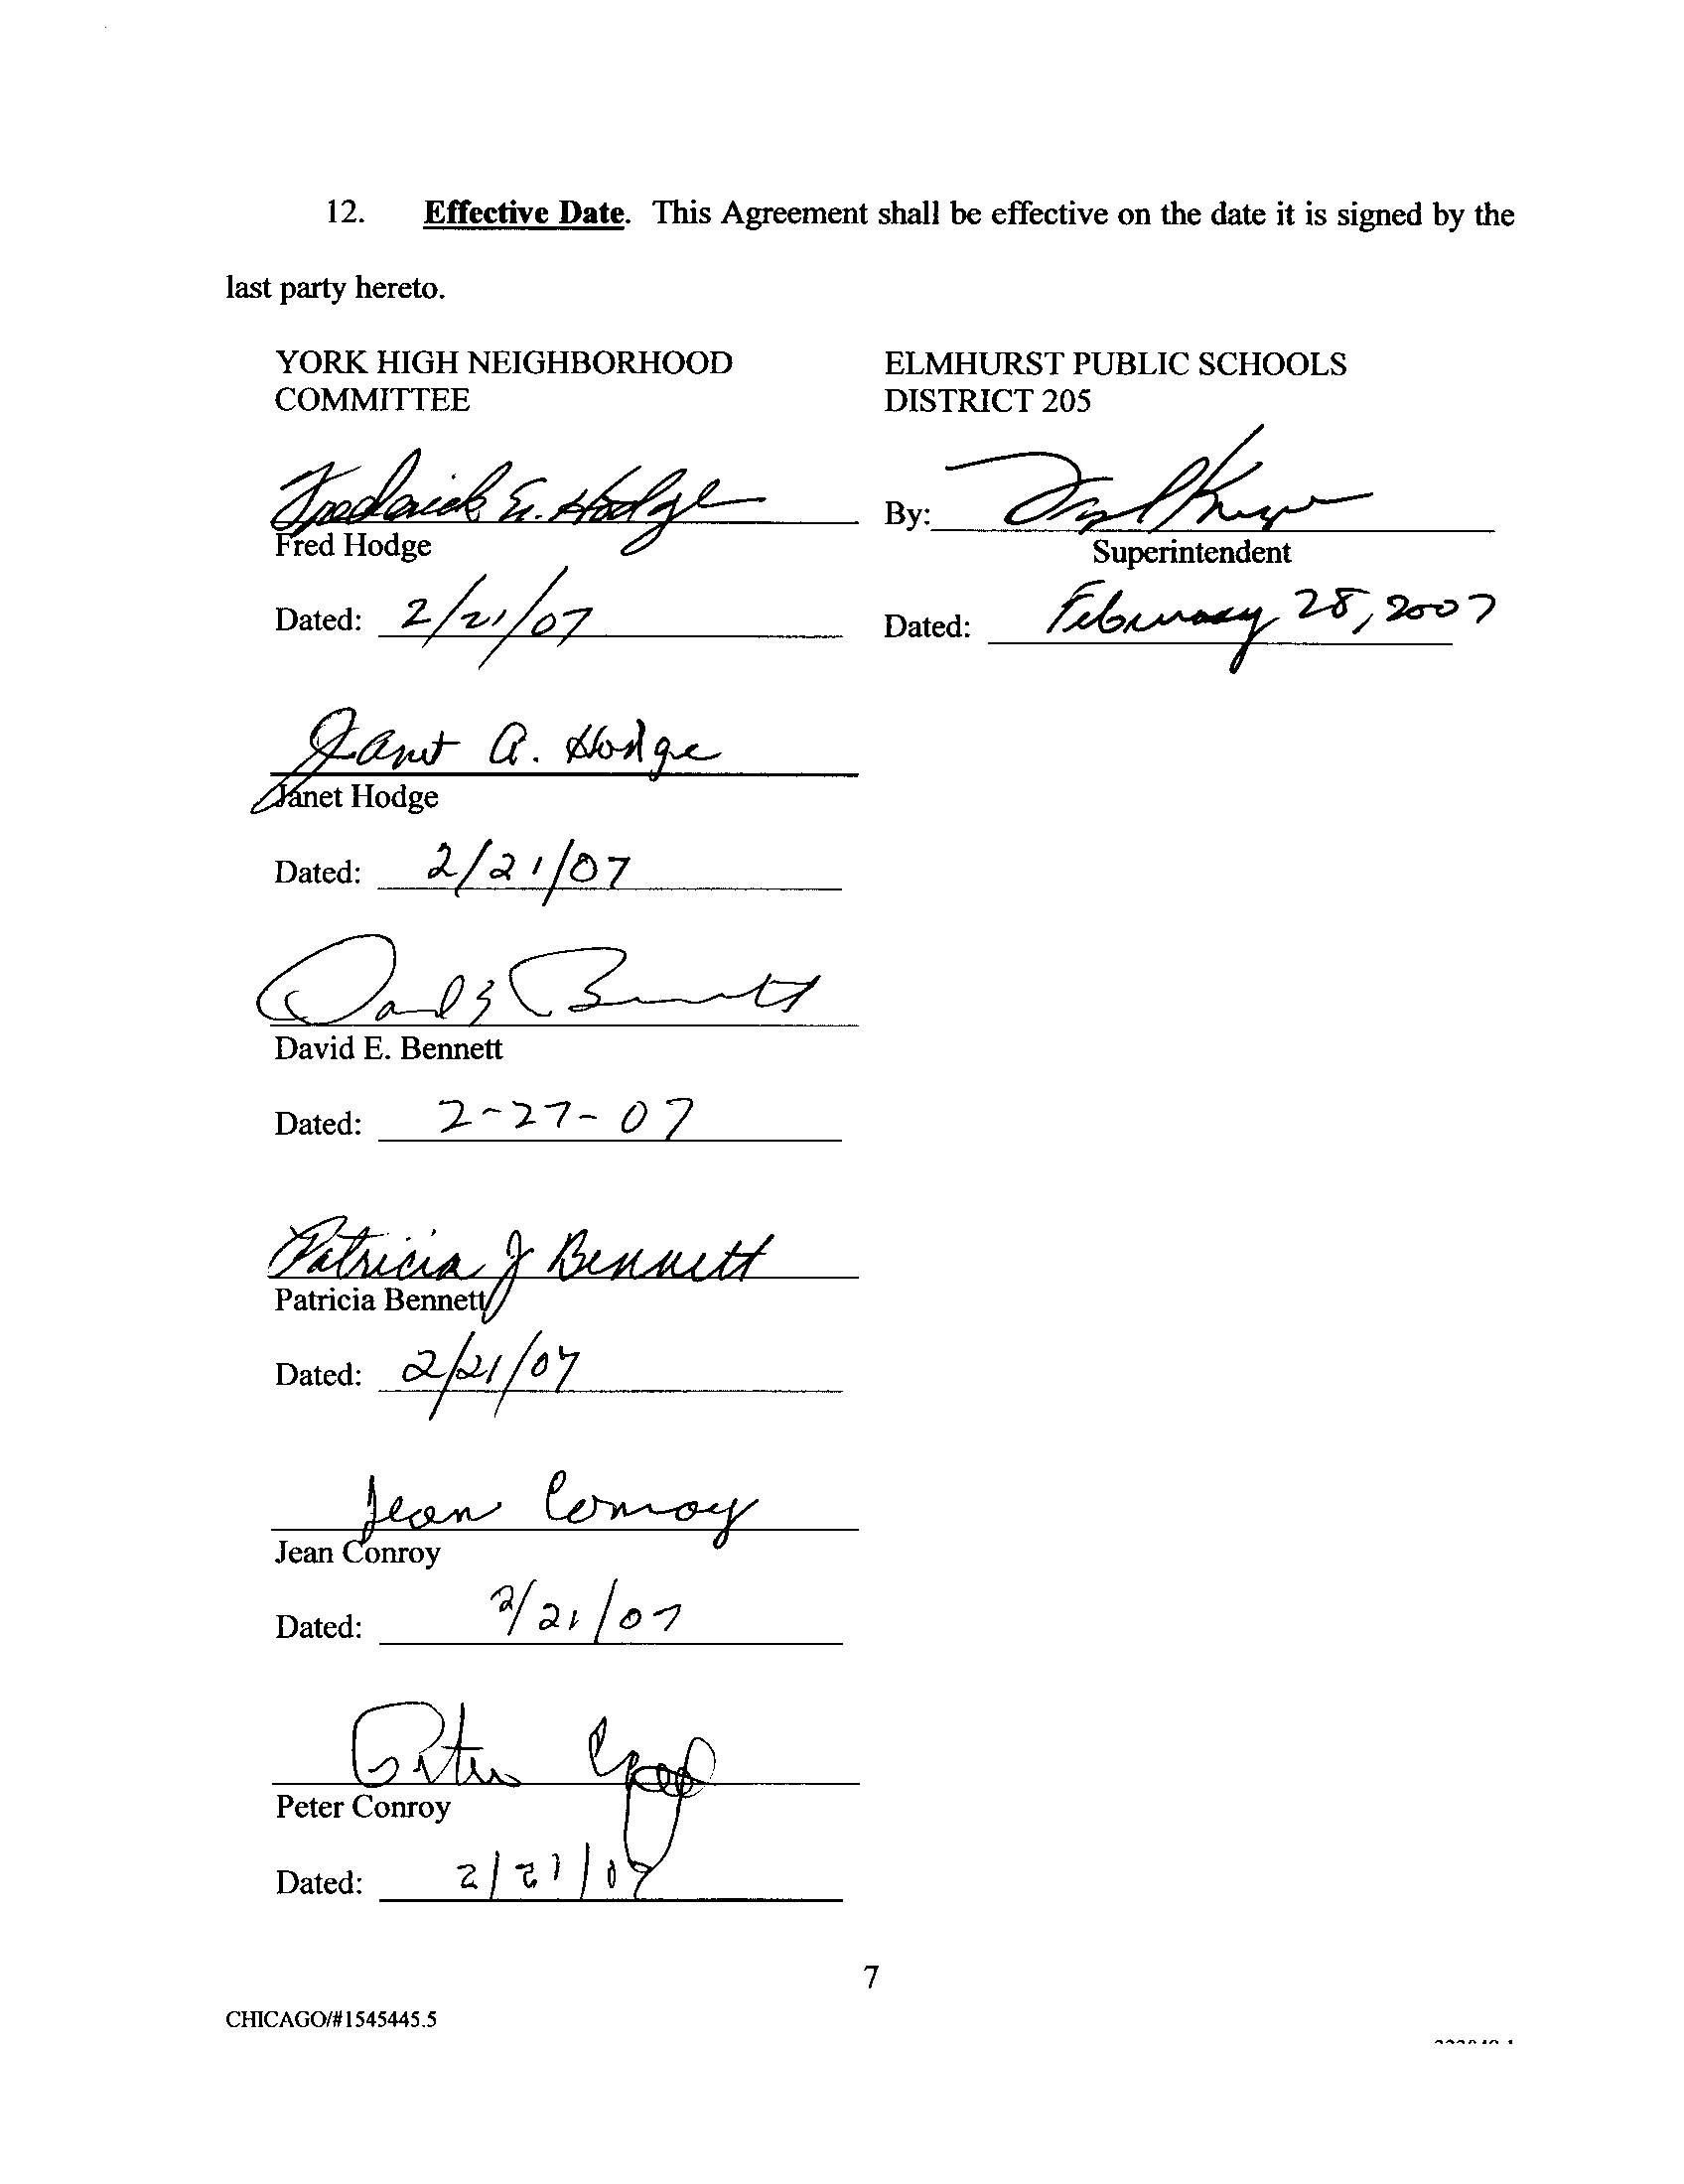 12. Effective Date. This Agreement shall be effective on the date it is signed by the
last party hereto.
YORK HIGH NEIGHBORHOOD
COMMITTEE
Frederick E. Hodge
Fred Hodge
Dated: 2/21/07
Janet A. Hodge
Janet Hodge
Dated: 2/21/07
David E Bennett
David E. Bennett
Dated: 2-27-07
Patricia J Bennett
Patricia Bennett
Dated: 2/21/07
Jean Conroy
Jean Conroy
Dated: 2/21/07
Peter Conroy
Peter Conroy
Dated: 2/21/07
ELMHURST PUBLIC SCHOOLS
DISTRICT 205
By:
Superintendent
Dated: February 28, 2007
7
CHICAGO/#1545445.5